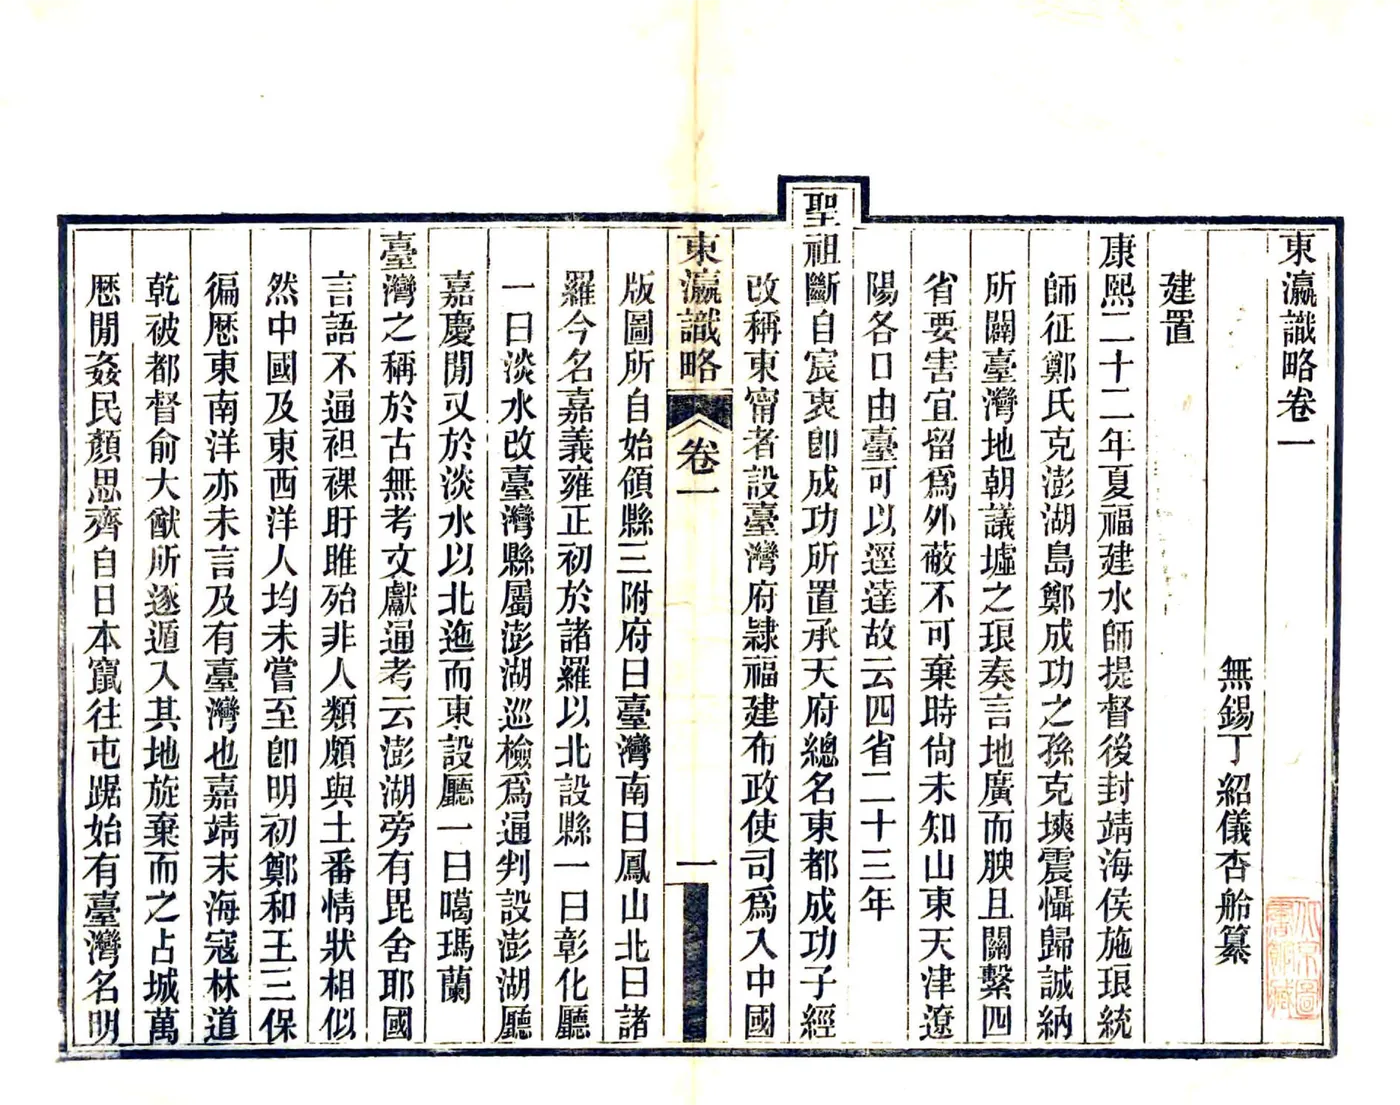 東瀛識略卷一
無錫丁紹儀杏舲纂
建置
康熙二十二年夏福建水師提督後封靖海侯施琅統
師征鄭氏克澎湖島鄭成功之孫克塽震懾歸誠納
所闢臺灣地朝議墟之琅奏言地廣而腴且關繫四
省要害宜留爲外蔽不可棄時尙未知山東天津遼
陽各口由臺可以逕達故云四省二十三年
聖祖斷自宸衷卽成功所置承天府總名東都成功子經
改稱東甯者設臺灣府隸福建布政使司爲入中國
東瀛識略
卷一
一
版圖所自始領縣三附府曰臺灣南曰鳳山北曰諸
羅今名嘉義雍正初於諸羅以北設縣一曰彰化廳
一曰淡水改臺灣縣屬澎湖巡檢爲通判設澎湖廳
嘉慶閒又於淡水以北迤而東設廳一曰噶瑪蘭
臺灣之稱於古無考文獻通考云澎湖旁有毘舍耶國
言語不通袒裸盱睢殆非人類頗與土番情狀相似
然中國及東西洋人均未嘗至卽明初鄭和王三保
徧歷東南洋亦未言及有臺灣也嘉靖末海寇林道
乾被都督俞大猷所逐遁入其地旋棄而之占城萬
歷閒姦民顏思齊自日本竄往屯踞始有臺灣名明